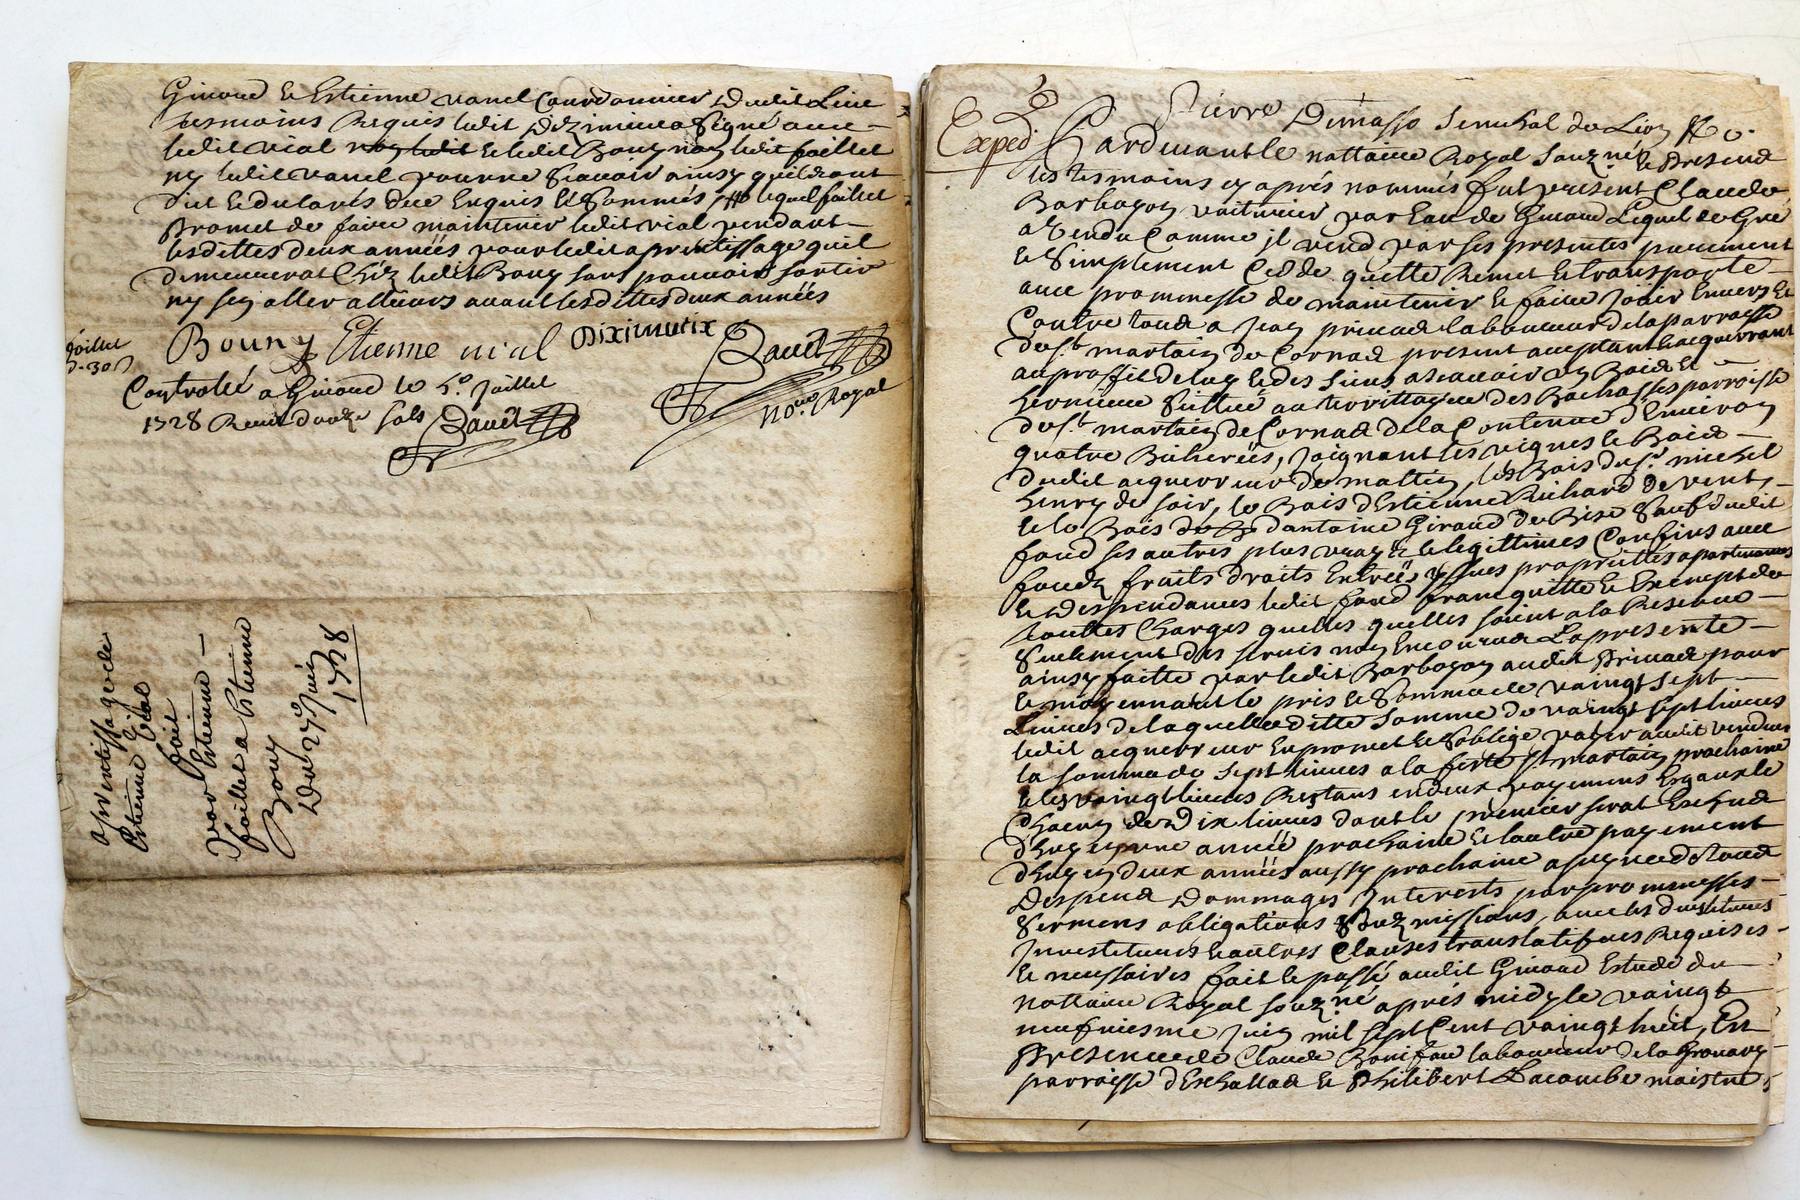 Giuoud & Estienne vanel Courdonnier dudit Lieu
tesmoins Requis ledit Diziminieu a Signé avec
ledit vial non ledit & ledit Bouny non ledit faillet
ny ledit vanel pour ne Scavoir ainsy quil ont
dit & declarés de ce Enquis & Sommés lequel faillet
Promet de faire maintenir ledit vial pendant
lesdittes deux années pour ledit aprentissage quil
demeurerat Chéz ledit Bouny sans pouvoir sortir
ny sen aller alleurs avant lesdittes deux années
Bouny Etienne vial Diximieux Davet
No.re Royal
Controllé a Giuoud le 5.e Juillet
1728 Receu douze sols Davet
aprentissage de
Estienne Vial
fait
par Estienne
faillet a Estienne
Bouny
Du 27.e Juin
1728
Exped.
Pierre Dimasso Senechal de Lion
Pardevant le nottaire Royal Souz.né & Presend
les tesmoins cy aprés nommés fut present Claude
Barbazon voiturier par Eau de Giuoud Lequel de Gré
a Vendu Comme jl vend par ses presentes purement
& Simplement Cedde quitte Remet & transporte
avec prommesse de maintenir & faire Joüir Envers &
Contre tous a Jean priuad laboureur de la parroisse
de S.t martain de Cornas present acceptant & acquerrant
au proffit de luy & des Siens, ascavoir un Bois &
hermiere Sittué au territtoire des Rochasses parroisse
de S.t martain de Cornas de la Contenue d'Environ
quatre Bicherées, Joignant les vignes & Bois
dudit acquerreur de mattin, les Bois du S.r michel
henry de soir, le Bois d'Estienne Richard de vent,
& le Bois d'antoine Giraud de Bise Sauf dudit
fond ses autres plus vrays & legittimes Confins avec
fondz fruits droits Entrées yssues proprietés apartenances
& Despendances ledit fond franc quitte & Exempt de
touttes Charges quelles quelles soient a la Reserve
Seulement des servis non Encourus La presente
ainsy faitte par ledit Barbazon audit Priuad pour
& moyennant le prix & Somme de vaingt sept
Livres de laquelle ditte Somme de vaingt sept livres
ledit acquerreur En promet & S'oblige payer audit vendeur
la somme de sept livres a la feste S.t martain prochaine
& les vaingt livres Restans en deux payemens Esgaux de
Chacun de Dix livres dont le premier serat Escheud
d'huy en une année prochaine & l'autre payement
d'huy en deux années aussy prochaine a peyne de tous
Despens Dommages Interests par prommesses
Sermens obligations Soubzmissions, avec les devestitures
Investitures & autres Clauses translatifves Requises
& necessaires fait & passé audit Giuoud Estude du
nottaire Royal Souz.né aprés midy le vaingt
neufviesme Juin mil sept Cent vaingt huit, En
Presence de Claude Boniface laboureur de la
parroisse d'Eschallas & Philibert Lacombe maistre